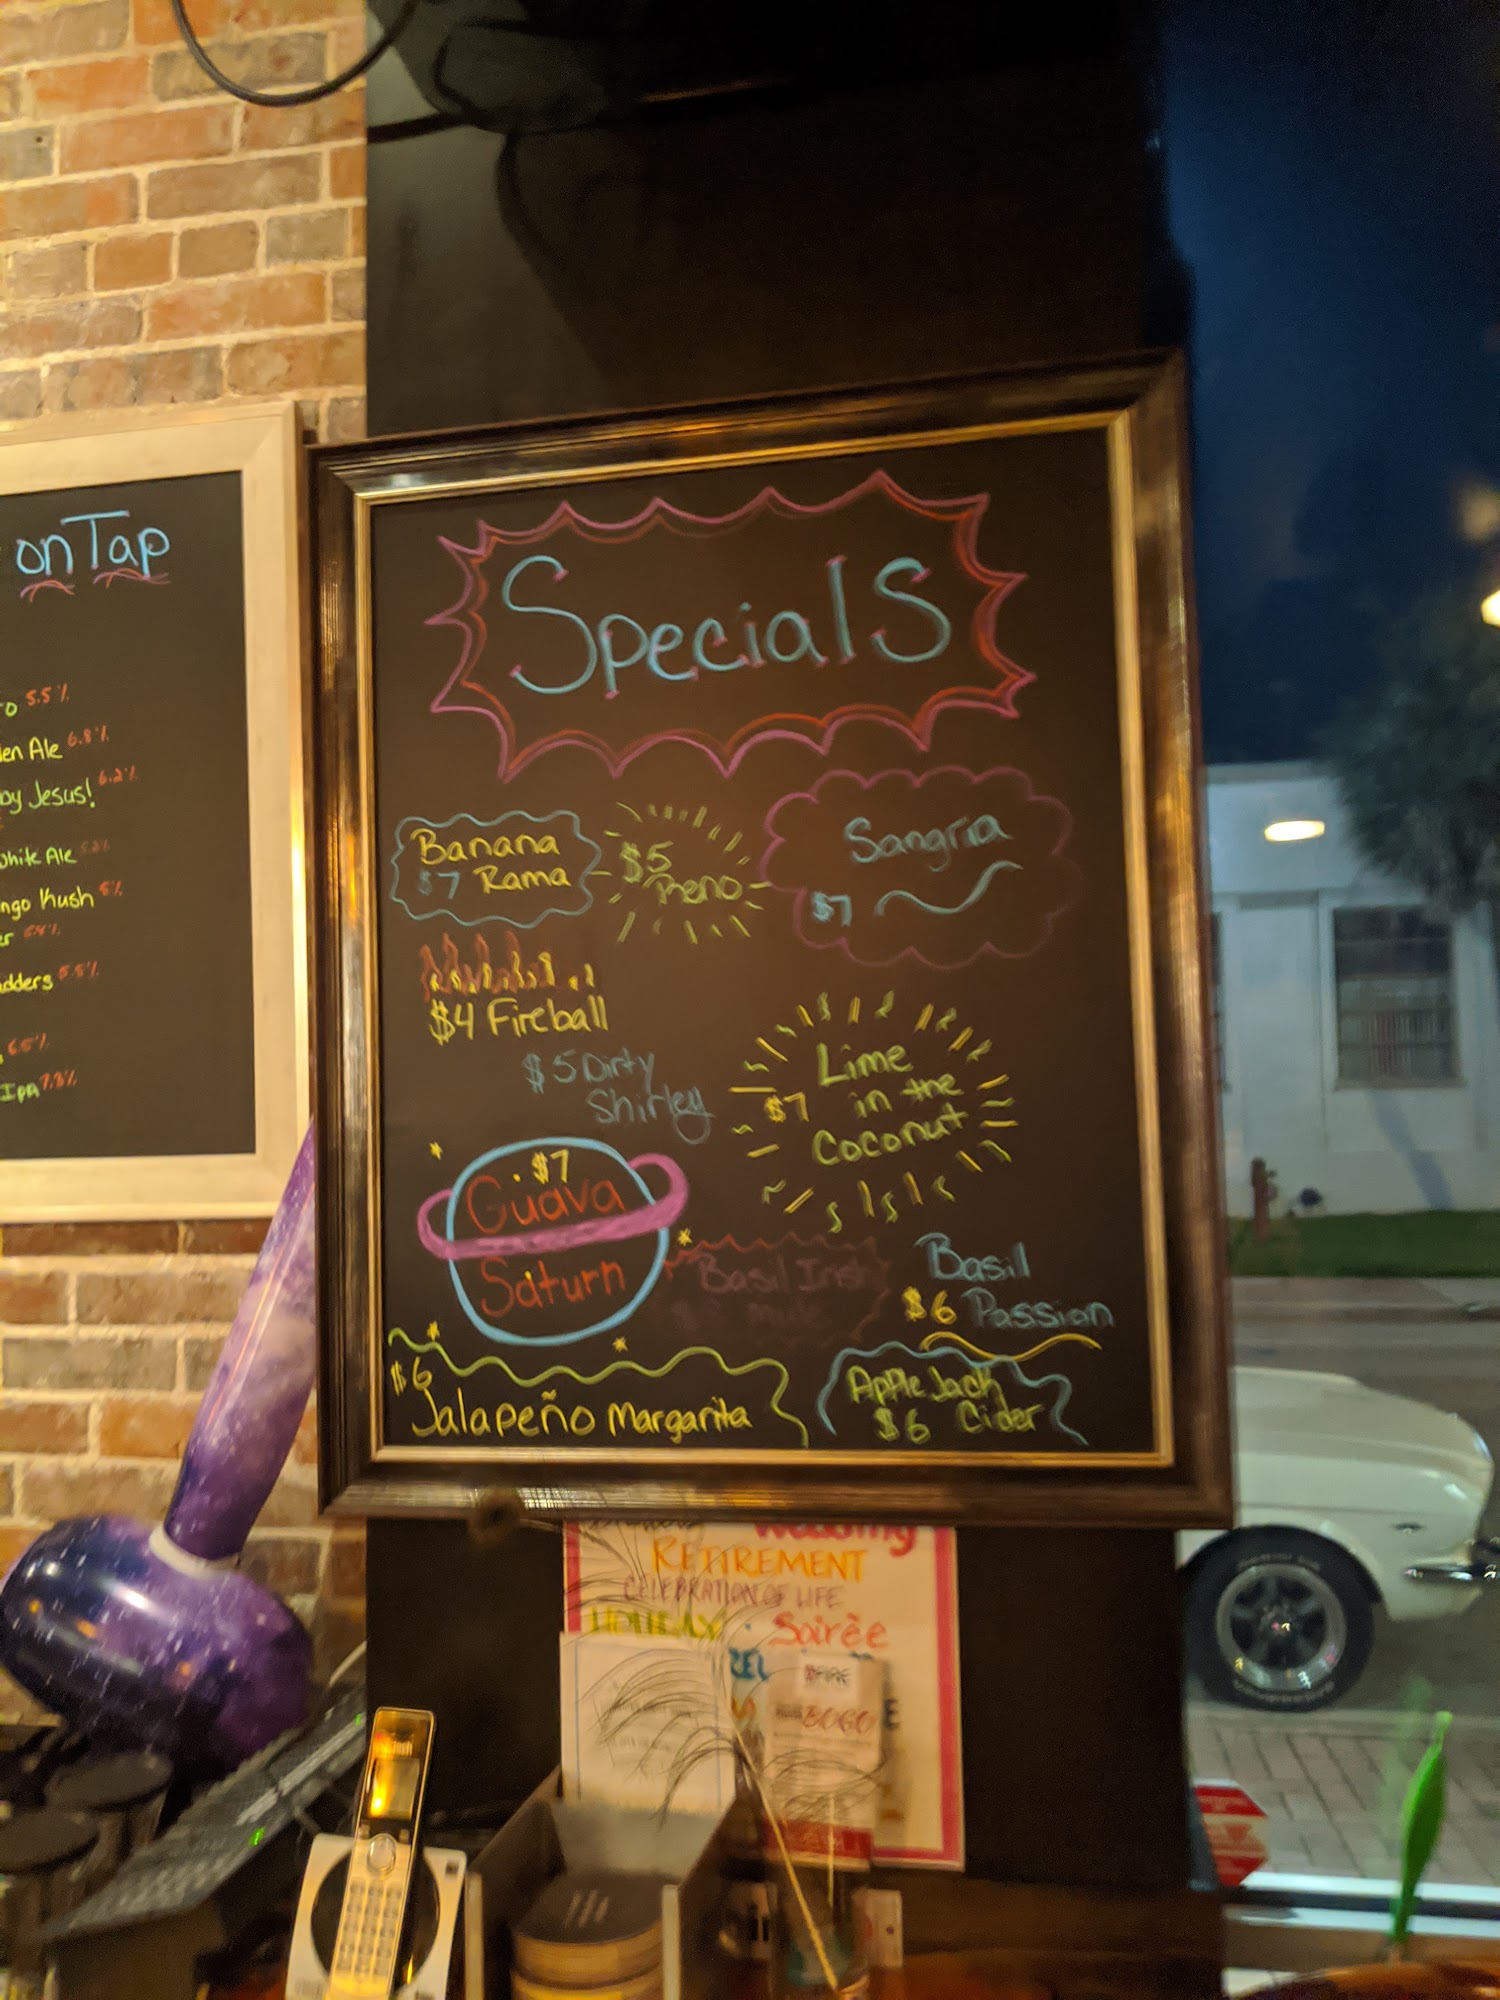 on Tap
5.5%
Ale 6.8%
Jesus! 6.2%
White Ale
Kush
5.5%
6.5%
Ipa 7.3%
Specials
Banana
$7 Rama
$5
Keno
Sangria
$7
$4 Fireball
$5 Dirty
Shirley
Lime
$7 in the
Coconut
$7
Guava
Saturn
Basil Irish
Mule
Basil
$6 Passion
$6
Jalapeño Margarita
Apple Jack
$6 Cider
Wedding
RETIREMENT
CELEBRATION OF LIFE
HOLIDAY
Soirèe
BOGO